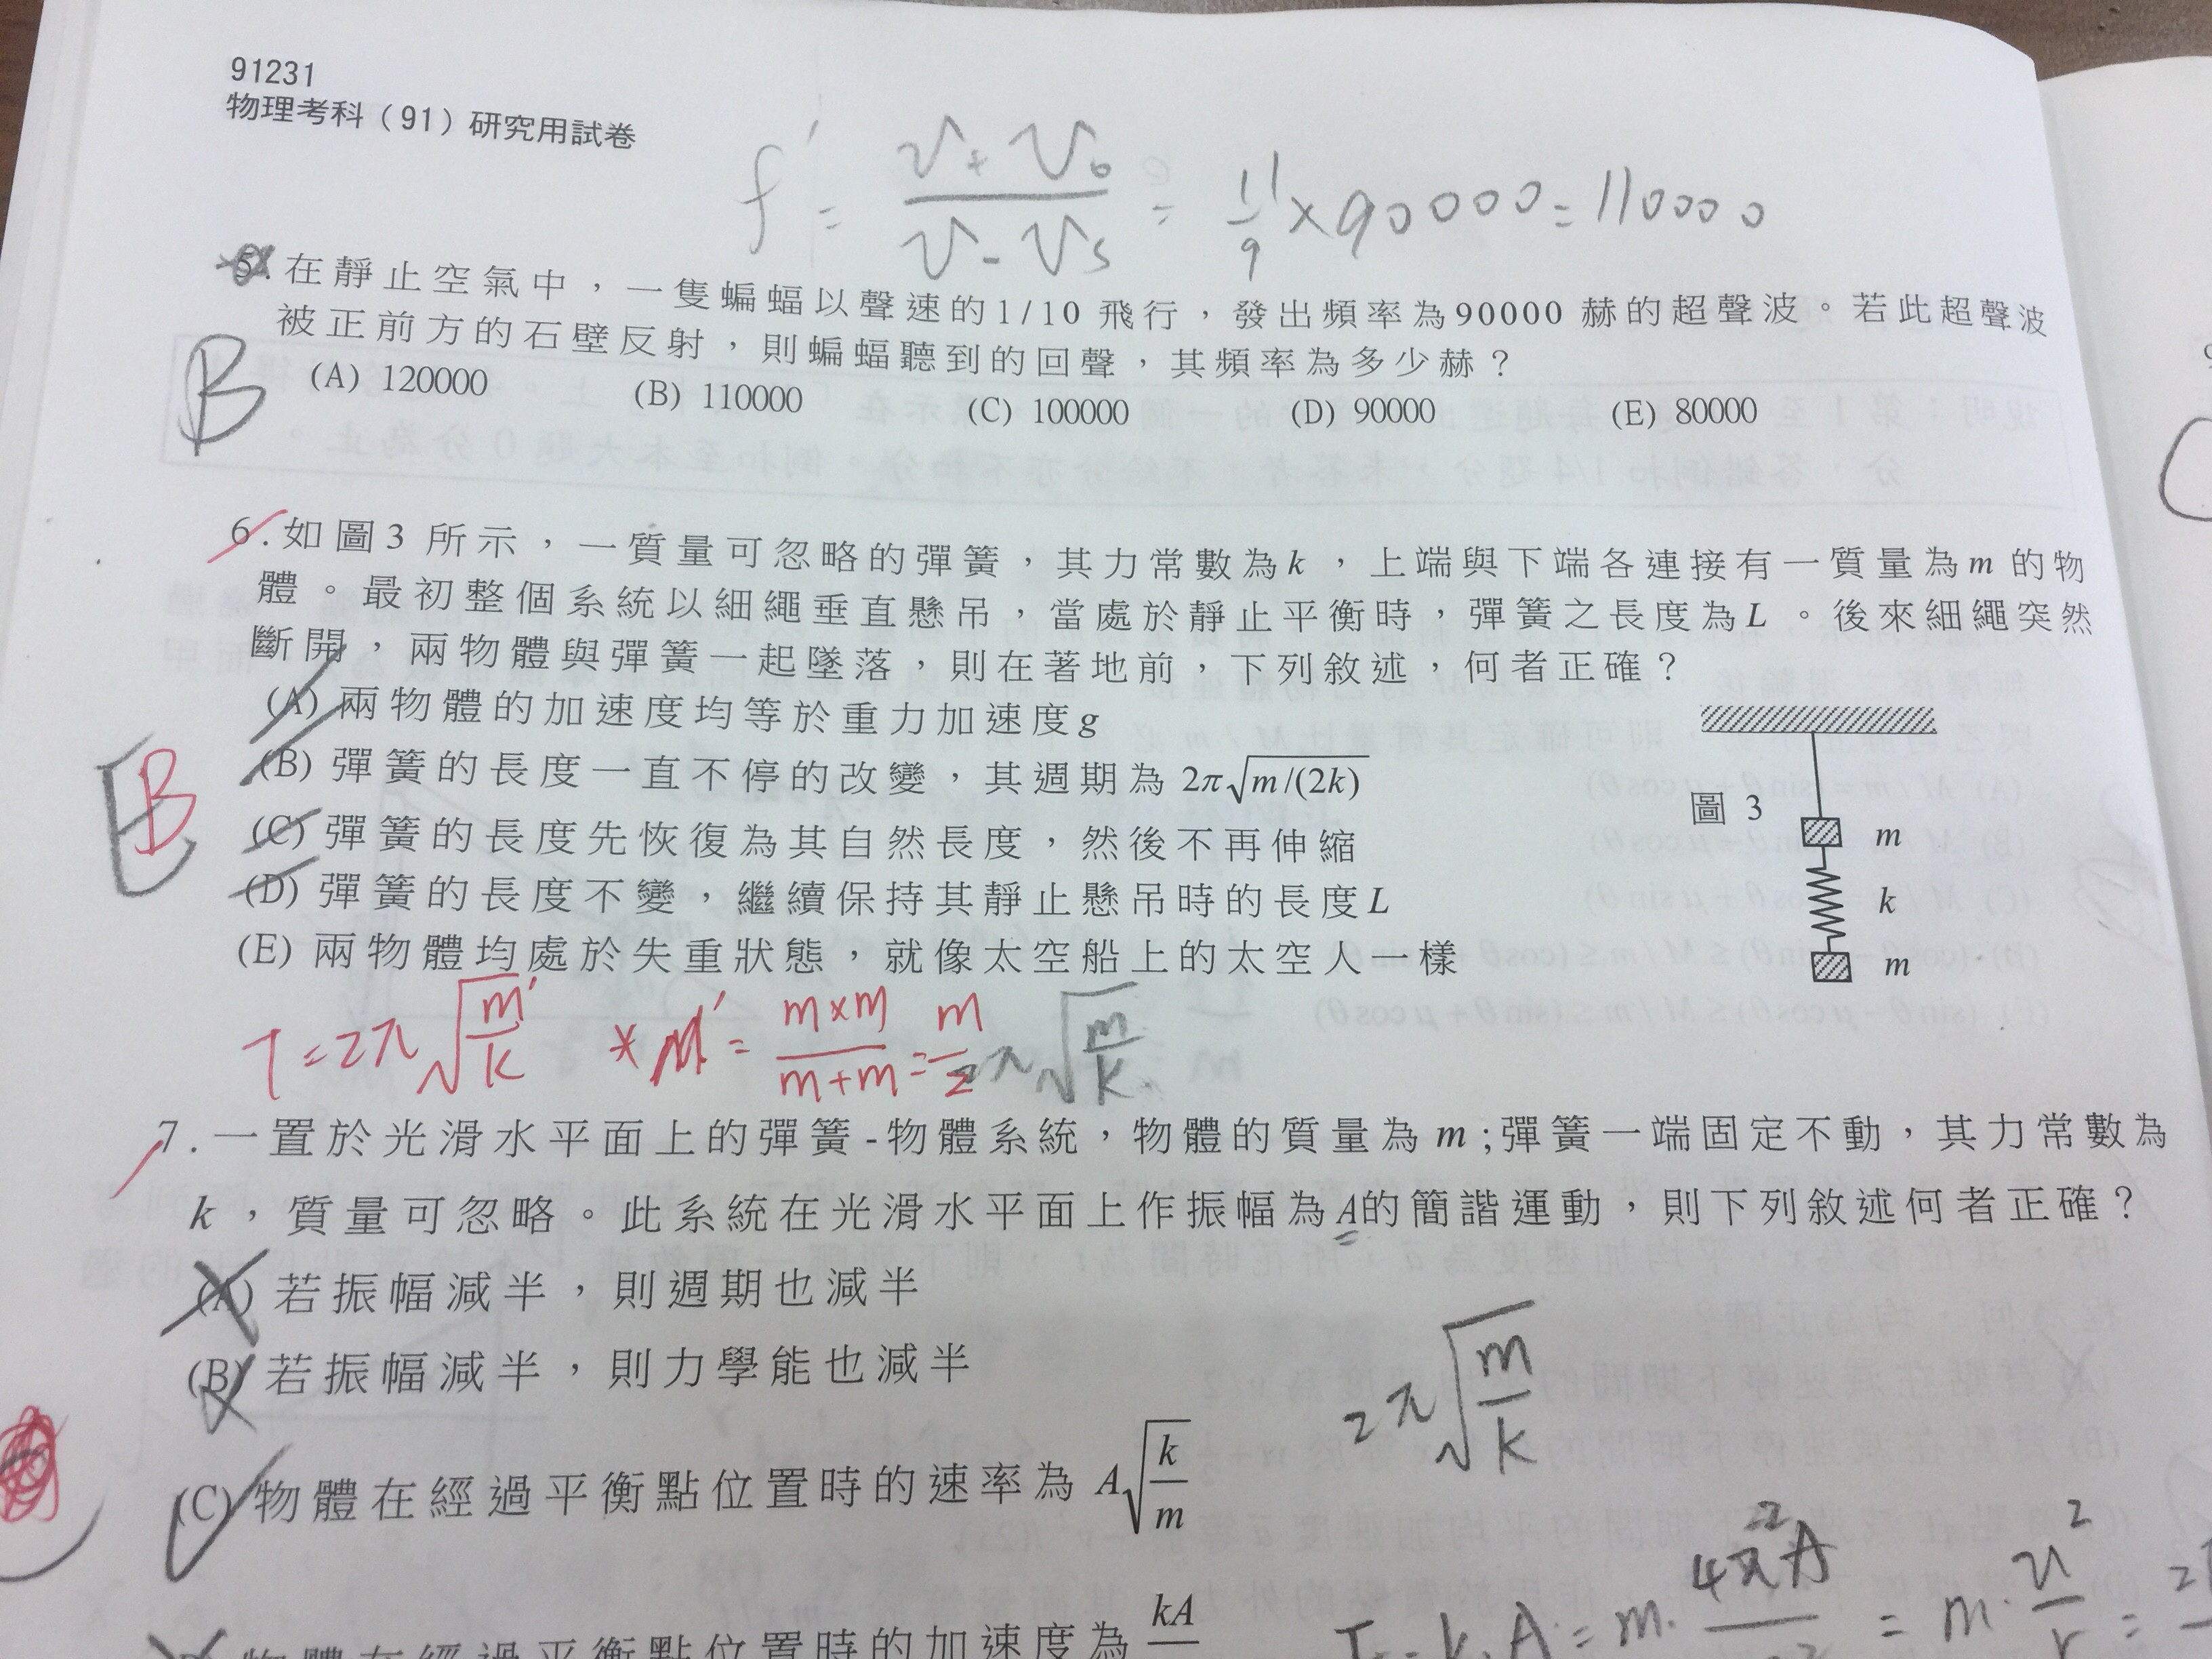 91231
物理考科（91）研究用試卷
f' = (v + v₀)/(v - vs) = 11/9 × 90000 = 110000
5. 在靜止空氣中，一隻蝙蝠以聲速的1/10 飛行，發出頻率為90000 赫的超聲波。若此超聲波
被正前方的石壁反射，則蝙蝠聽到的回聲，其頻率為多少赫？
B
(A) 120000 (B) 110000 (C) 100000 (D) 90000 (E) 80000
6. 如圖3 所示，一質量可忽略的彈簧，其力常數為k ，上端與下端各連接有一質量為m 的物
體。最初整個系統以細繩垂直懸吊，當處於靜止平衡時，彈簧之長度為L 。後來細繩突然
斷開，兩物體與彈簧一起墜落，則在著地前，下列敘述，何者正確？
(A) 兩物體的加速度均等於重力加速度g
(B) 彈簧的長度一直不停的改變，其週期為 2π√(m/(2k))
B
(C) 彈簧的長度先恢復為其自然長度，然後不再伸縮
(D) 彈簧的長度不變，繼續保持其靜止懸吊時的長度L
(E) 兩物體均處於失重狀態，就像太空船上的太空人一樣
圖 3
m
k
m
T = 2π√(m'/k) * m' = (m×m)/(m+m) = m/2 2π√(m/k)
7. 一置於光滑水平面上的彈簧-物體系統，物體的質量為 m ;彈簧一端固定不動，其力常數為
k ，質量可忽略。此系統在光滑水平面上作振幅為A的簡諧運動，則下列敘述何者正確？
(A) 若振幅減半，則週期也減半
(B) 若振幅減半，則力學能也減半
2π√(m/k)
(C) 物體在經過平衡點位置時的速率為 A√(k/m)
物體在經過平衡點位置時的加速度為 kA